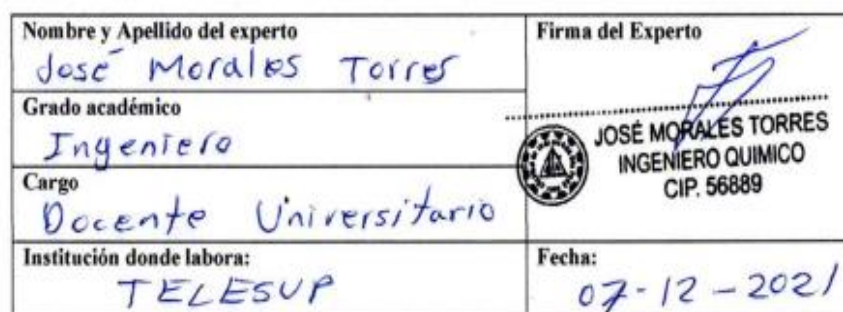 Nombre y Apellido del experto
José Morales Torres
Grado académico
Ingeniero
Cargo
Docente Universitario
Institución donde labora:
TELESUP
Firma del Experto
JOSÉ MORALES TORRES
INGENIERO QUIMICO
CIP. 56889
Fecha:
07-12-2021